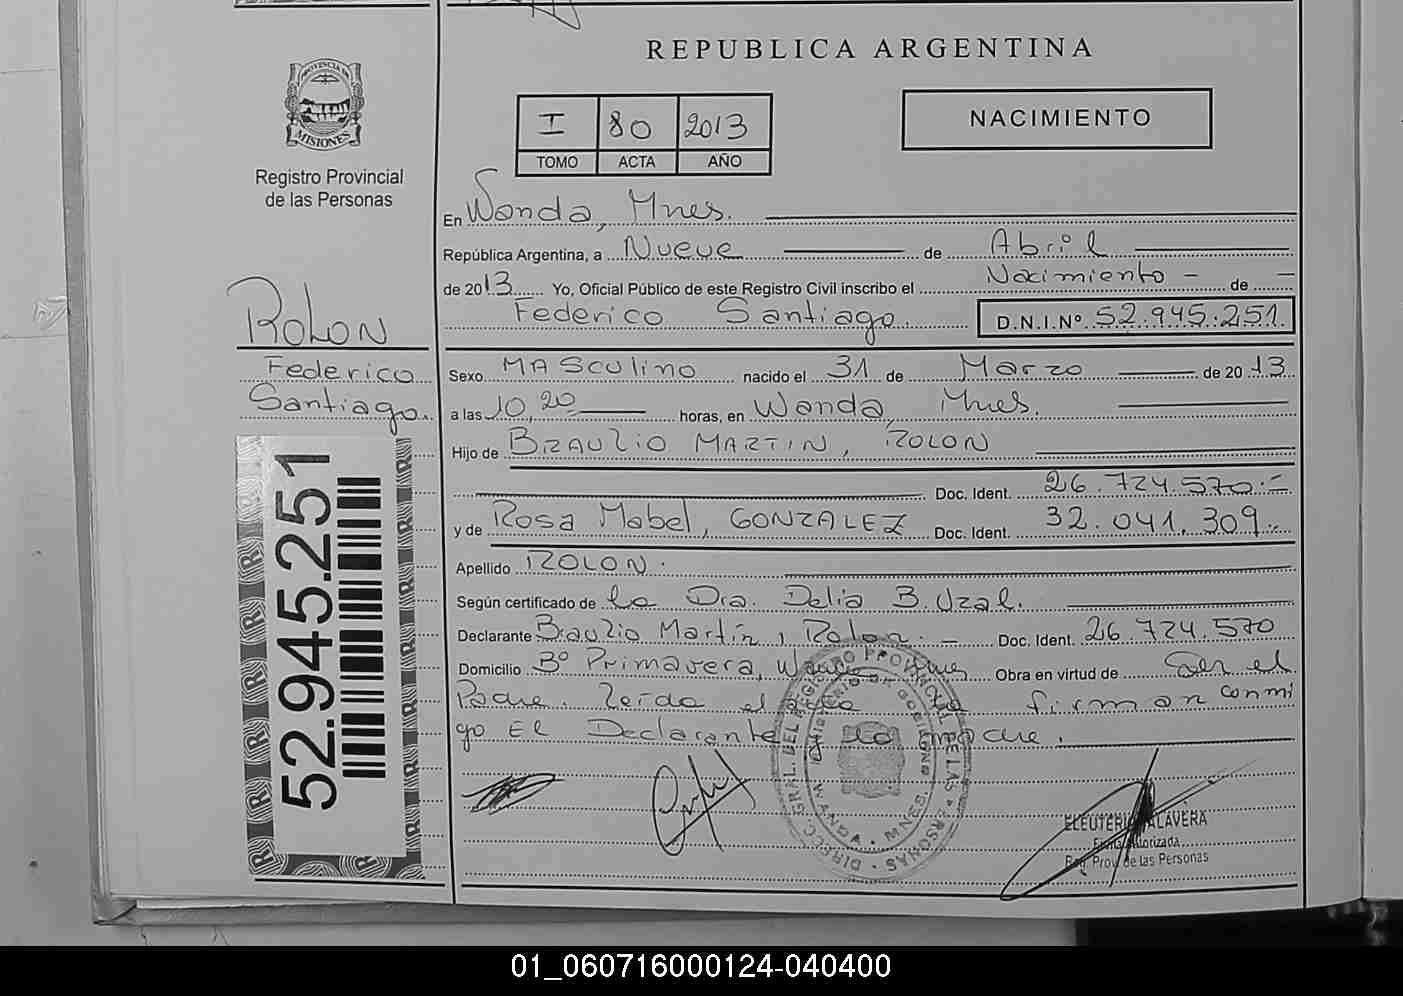 REPUBLICA ARGENTINA
PROVINCIA
MISIONES
Registro Provincial
de las Personas
I 80 2013
TOMO ACTA AÑO
NACIMIENTO
En Wanda, Mnes.
República Argentina, a Nueve de Abril
de 2013 Yo, Oficial Público de este Registro Civil inscribo el Nacimiento - de -
Federico Santiago. D.N.I.Nº 52.945.251
ROLON
Federico
Santiago.
52.945.251
Sexo MASculino nacido el 31 de Marzo de 2013
a las 10 20 horas, en Wanda, Mnes.
Hijo de BRAULIO MARTIN, ROLON
Doc. Ident. 26.724.570.-
y de Rosa Mabel, GONZALEZ Doc. Ident. 32.041.309.-
Apellido ROLON.
Según certificado de la Dra. Delia B. Uzal.
Declarante Braulio Martín, Rolon. - Doc. Ident. 26.724.570
Domicilio Bº Primavera, Wanda Mnes Obra en virtud de Ser el
Padre. Leída el acta la firman conmi
go El Declarante y la madre.
DIREC. GRAL. DEL REGISTRO PROVINCIAL DE LAS PERSONAS
MINISTERIO DE GOBIERNO
WANDA - MNES.
ELEUTERIO TALAVERA
Firma Autorizada
Reg. Prov. de las Personas
01_060716000124-040400